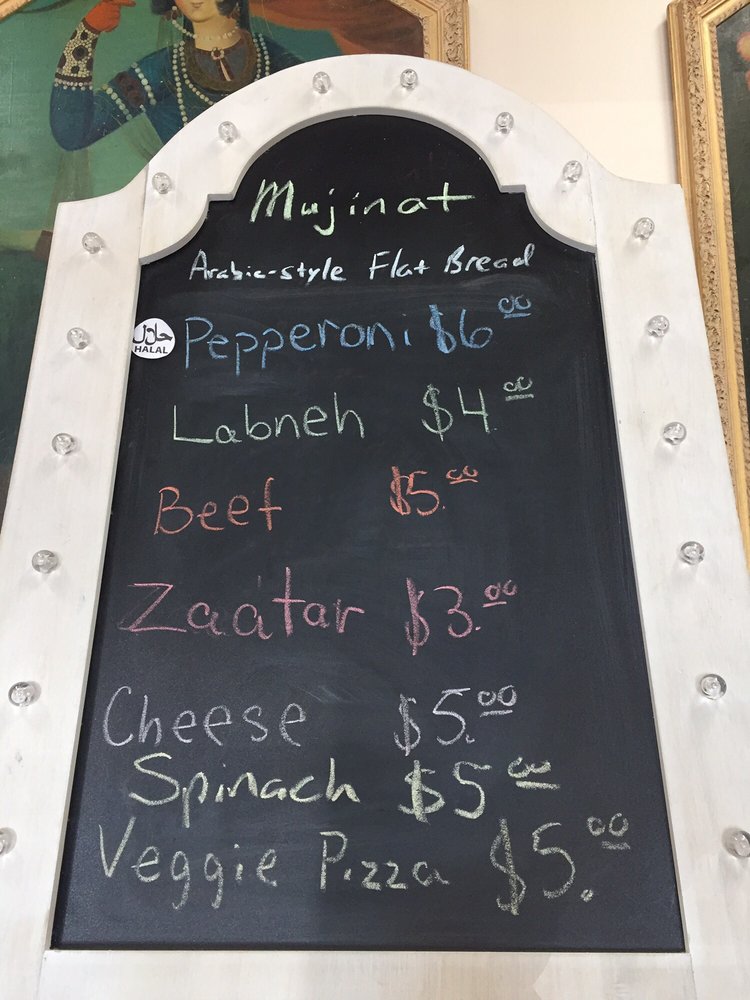 Mujinat
Arabic-style Flat Bread
حلال
HALAL
Pepperoni $6.00
Labneh $4.00
Beef $5.00
Zaa'tar $3.00
Cheese $5.00
Spinach $5.00
Veggie Pizza $5.00